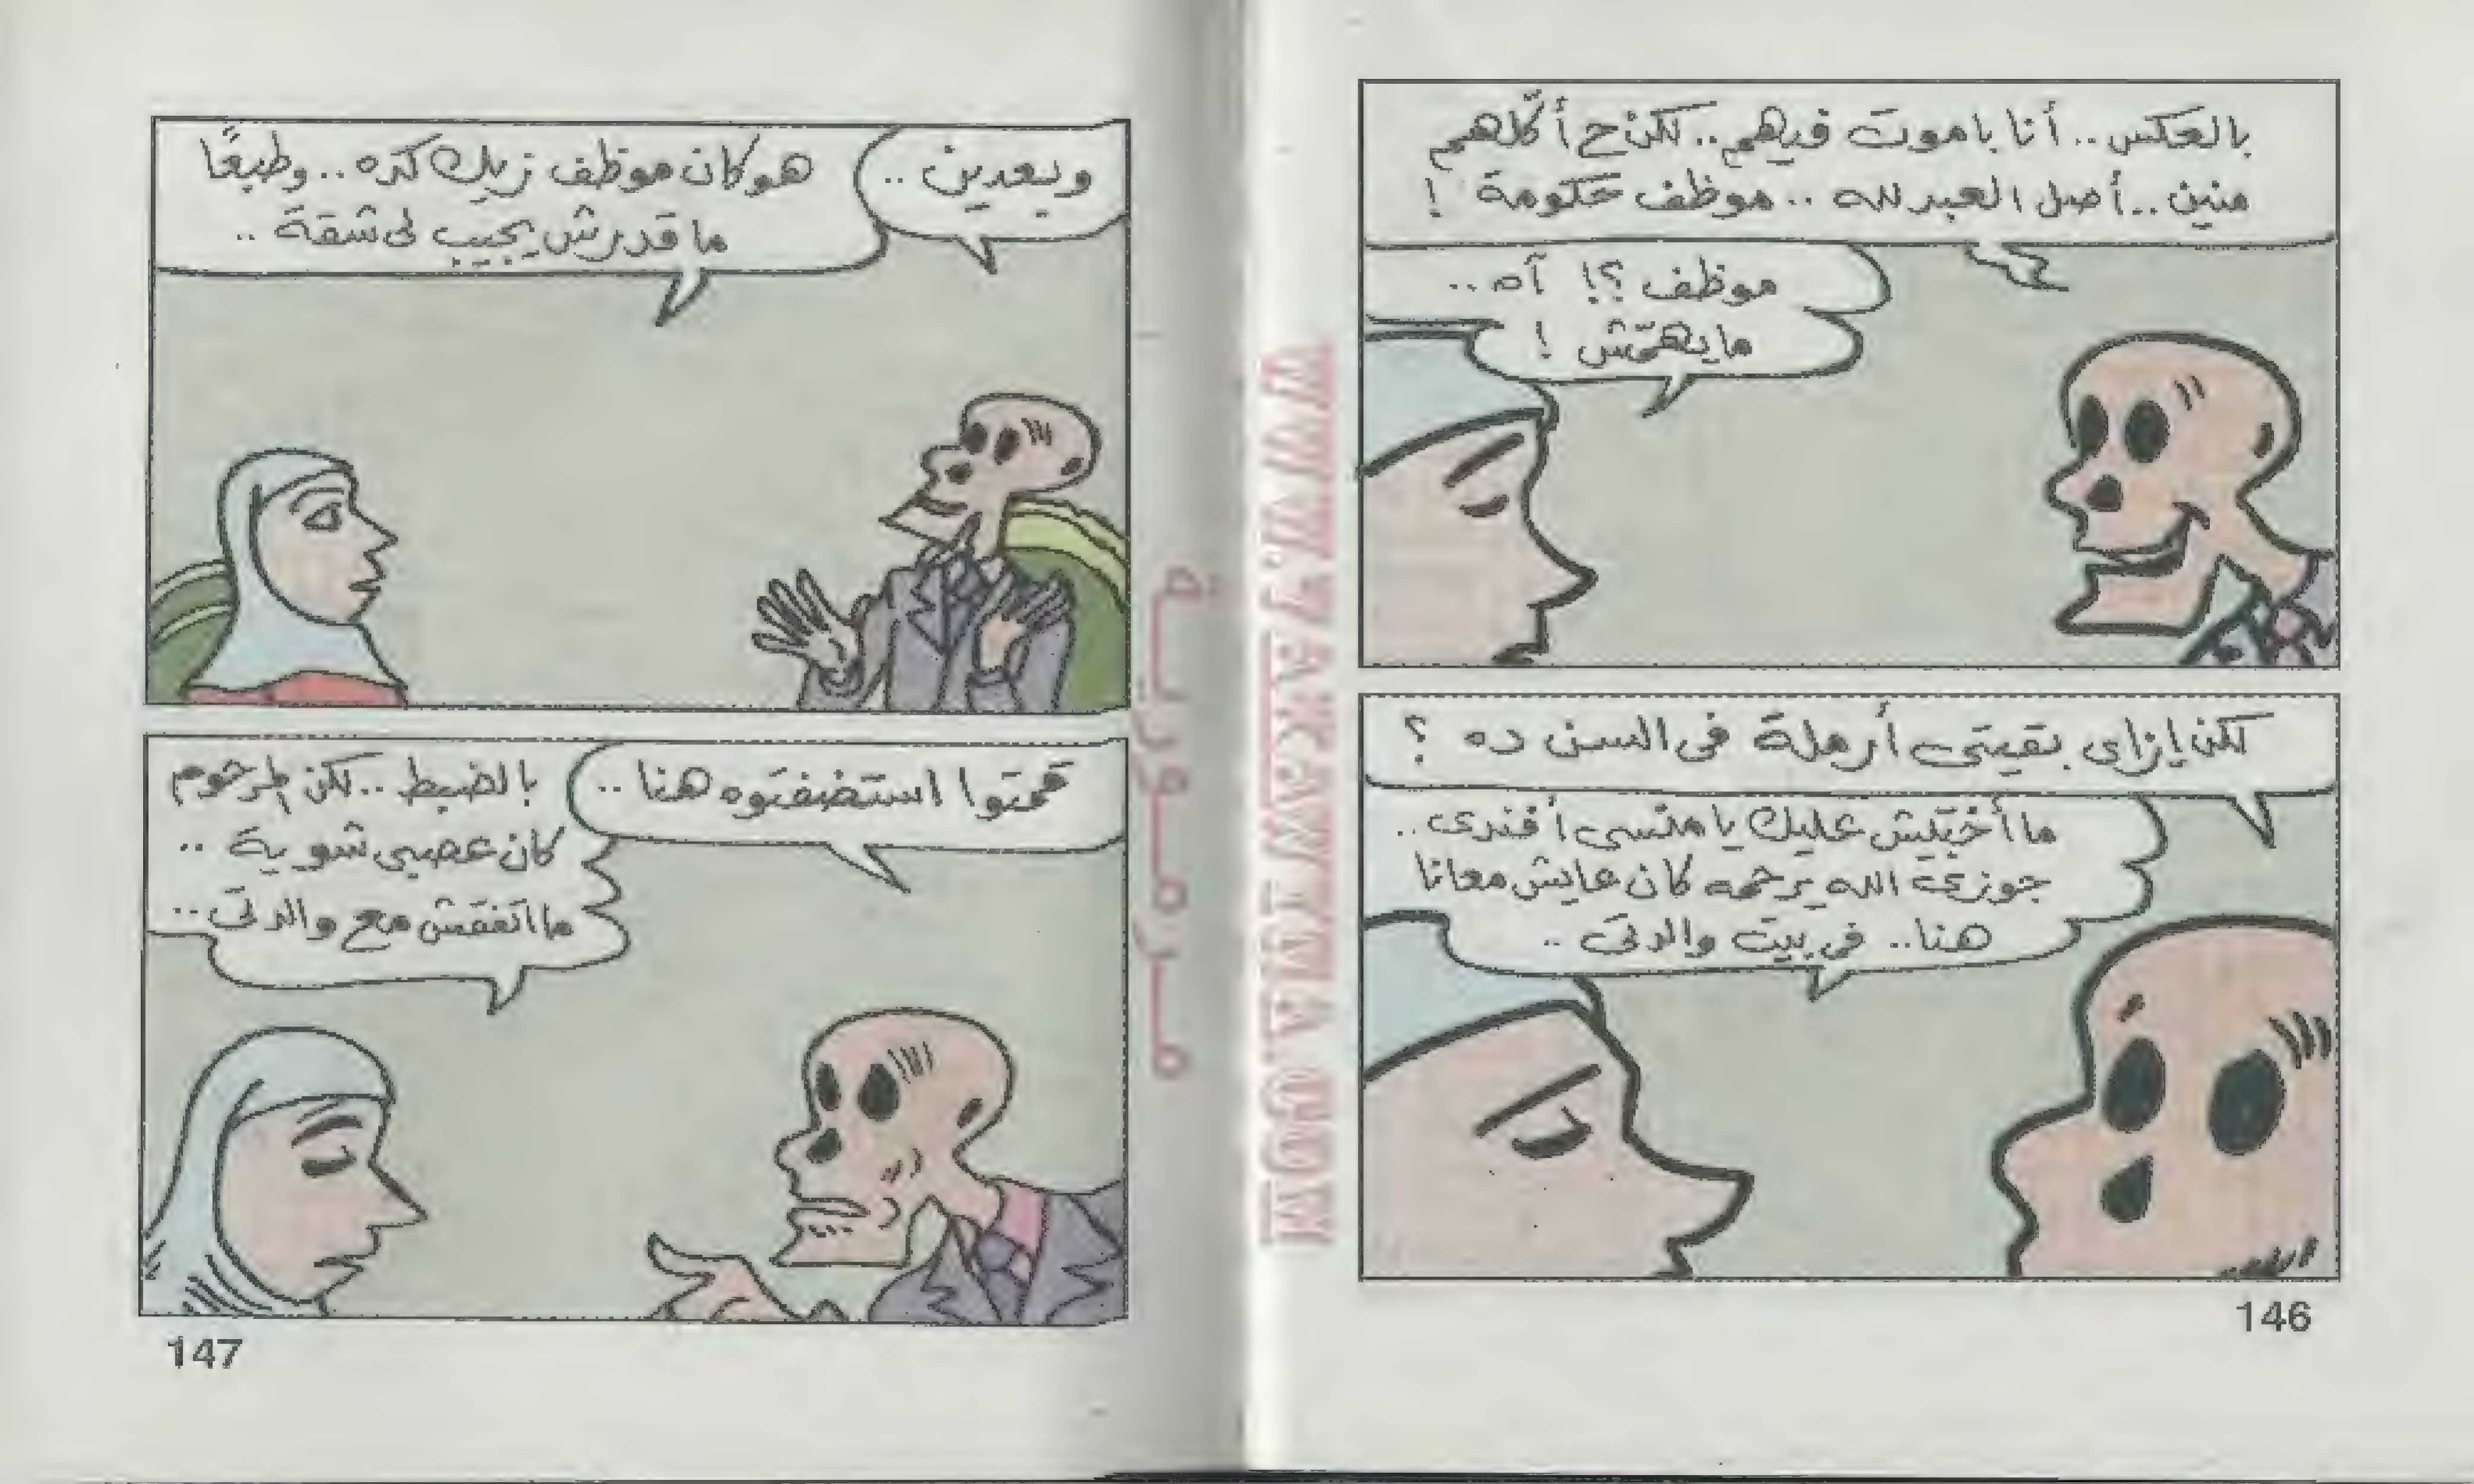 بالعكس.. أنا باموت فيهم.. لكن ح أأكّلهم
منين.. أصل العبد لله.. موظف حكومة !
موظف ؟! آه ..
ما يهمّش !
لكن إزاى بقيتى أرملة فى السن ده ؟
ما أخبّيش عليك يا منسى أفندى ..
جوزى الله يرحمه كان عايش معانا
هنا.. فى بيت والدتى ..
146
وبعدين ..
هو كان موظف زيك كده .. وطبعًا
ما قدرش يجيب لى شقة ..
قمتوا استضفتوه هنا ..
بالضبط .. لكن المرحوم
كان عصبى شوية ..
ما اتفقش مع والدتى ..
147
WWW.YAKAWEEA.COM
مرمورية